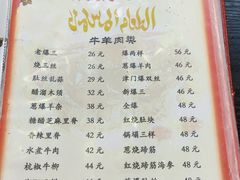 牛羊肉类
老爆三 26元 爆两样 56元
烧三丝 26元 葱爆羊肉 46元
肚丝乱蒜 26元 津门爆双丝 46元
醋溜木须 32元 新爆三 46元
葱爆杂碎 38元 全爆 48元
糖醋芝麻里脊 38元 红烧肚块 48元
香辣里脊 42元 锅塌三样 48元
水煮牛肉 42元 葱烧蹄筋 48元
杭椒牛柳 44元 红烧蹄筋海参 48元